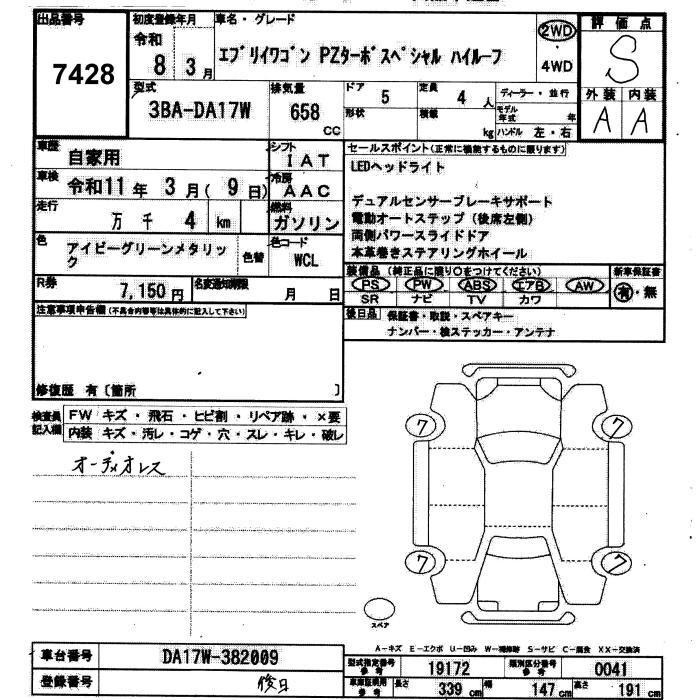 出品番号
7428
初度登録年月
令和
8 3月
車名・グレード
エブリイワゴン PZターボスペシャル ハイルーフ
2WD
4WD
評価点
S
外装 内装
A A
型式
3BA-DA17W
排気量
658
CC
ドア 5
定員 4 人
ディーラー・並行
形状
積載
kg
モデル年式 年
ハンドル 左・右
車歴 自家用
シフト IAT
車検 令和11年 3月( 9日)
冷房 AAC
走行 万 千 4 km
燃料 ガソリン
色 アイビーグリーンメタリック
色替
色コード WCL
R券 7,150円
名変通知期限 月 日
注意事項申告欄(不具合内容等は具体的に記入して下さい)
修復歴 有〔箇所 〕
セールスポイント(正常に機能するものに限ります)
LEDヘッドライト
デュアルセンサーブレーキサポート
電動オートステップ(後席左側)
両側パワースライドドア
本革巻きステアリングホイール
装備品(純正品に限り○をつけてください)
新車保証書
PS PW ABS エアB AW
有・無
SR ナビ TV カワ
後日品 保証書・取説・スペアキー
ナンバー・検ステッカー・アンテナ
検査員記入欄
FW キズ・飛石・ヒビ割・リペア跡・×要
内装 キズ・汚レ・コゲ・穴・スレ・キレ・破レ
オーディオレス
7
7
7
7
スペア
A-キズ E-エクボ U-凹み W-補修跡 S-サビ C-腐食 XX-交換済
車台番号 DA17W-382009
登録番号 後日
型式指定番号 参考 19172
類別区分番号 参考 0041
車庫証明用 参考 長さ 339 cm 幅 147 cm 高さ 191 cm